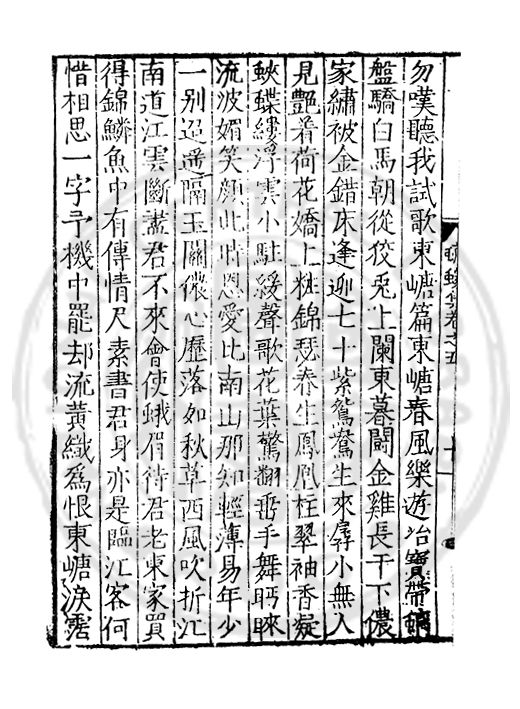 勿嘆聽我試歌東嵣篇東嵣春風樂遊冶寶帶鏑
盤驕白馬朝從狡兎上闌東暮鬪金雞長干下儂
家繡被金錯床逢迎七十紫鴛鴦生來孱小無人
見艷着荷花嬌上粧錦瑟春生鳳凰柱翠袖香凝
蛺蝶縷浮雲小駐緩聲歌花葉驚翻垂手舞眄睞
流波媚笑頗此時恩愛比南山那知輕薄易年少
一别迢遥隔玉關儂心歷落如秋草西風吹折江
南道江雲斷盡君不來會使蛾眉待君老東家買
得錦鱗魚中有傳情尺素書君身亦是臨江客何
惜相思一字予機中罷却流黃織爲恨東嵣淚霑
蠛蠓集卷之五
十